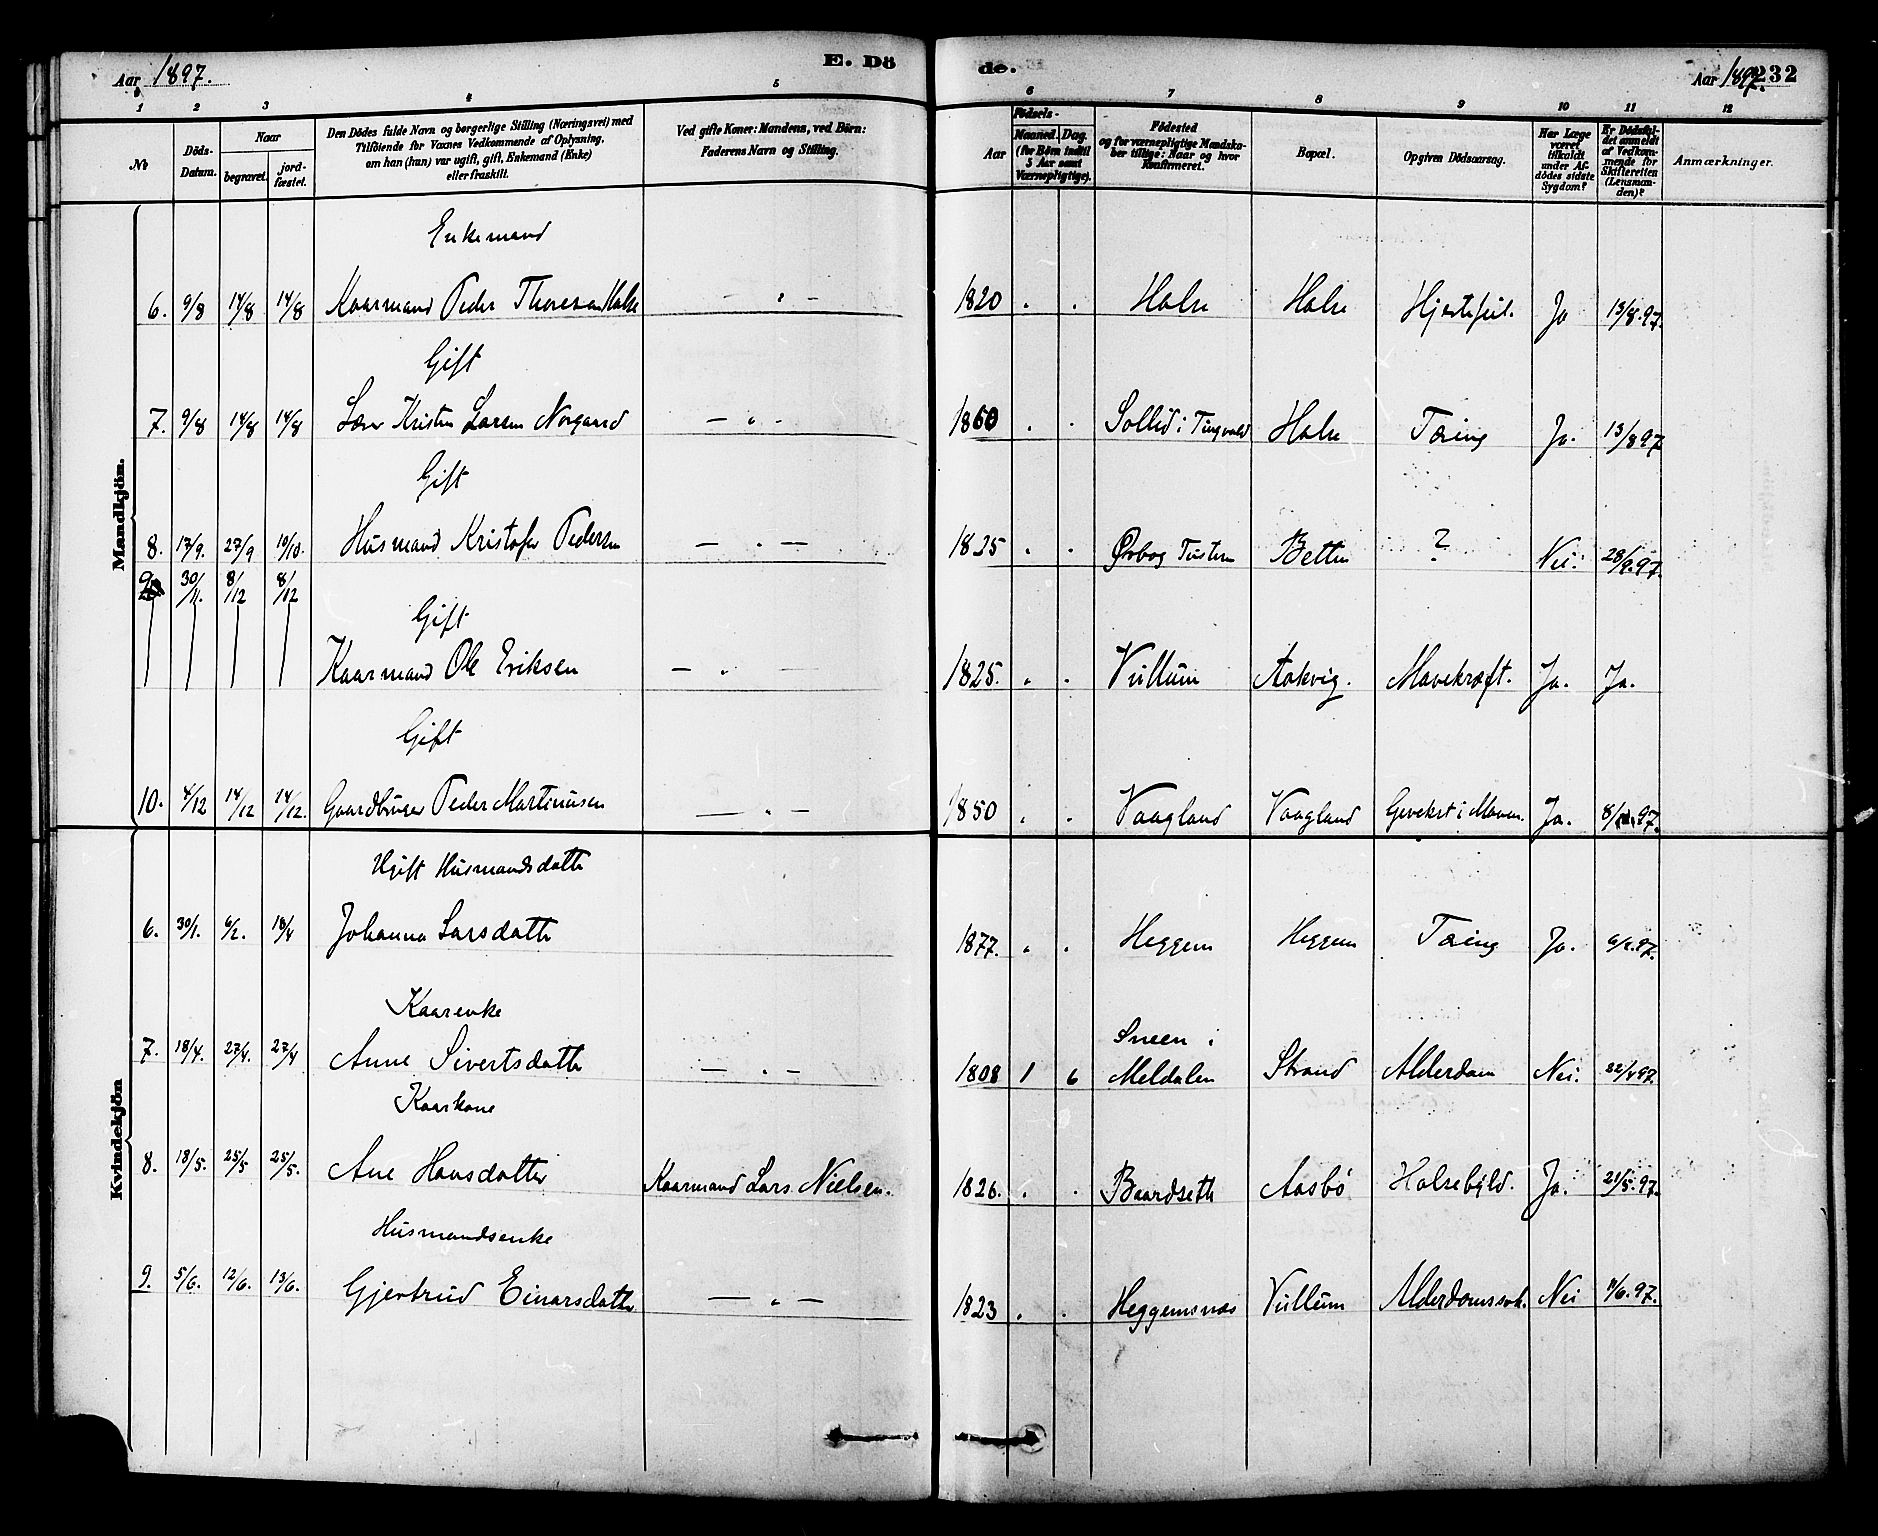 Aar 1897.
E. Dö
de.
Aar 1897.
232
1 2 3 4 5
6 7 8 9 10 11 12
No
Döds-
Datum.
Naar
begravet.
jord-
fæstet.
Den Dödes fulde Navn og borgerlige Stilling (Næringsvei) med
Tilföiende for Voxnes Vedkommende af Oplysning,
om han (hun) var ugift, gift, Enkemand (Enke)
eller fraskilt.
Ved gifte Koner: Mandens, ved Börn:
Faderens Navn og Stilling.
Födsels-
Aar
Maaned.
Dag.
(for Börn indtil
5 Aar samt
Værnepligtige).
Födested
og for værnepligtige Mandska-
ber tillige: Naar og hvor
konfirmeret.
Bopæl.
Opgiven Dödsaarsag.
Har Læge
været
tilkaldt
under Af-
dödes sidste
Sygdom?
Er Dödsfal-
det anmeldt
af Vedkom-
mende for
Skifteretten
(Lensman-
den)?
Anmærkninger.
Mandkjön.
Enkemand
6. 9/8 14/8 14/8 Kaarmand Peder Thoresen Halse — " — 1820 . . Halse Halse Hjertefeil. Ja 13/8.97.
Gift
7. 9/8 14/8 14/8 Lærer Kristen Larsen Norgaard — " - 1860 . . Sollid i Tingvold Halse Tæring Ja. 13/8 97
Gift
8. 17/9. 27/9 10/10. Husmand Kristofer Pedersen — " — 1825 . . Ørbog Tustern Betten ? Nei. 28/9.97.
9 30/11. 8/12 8/12
Gift
Kaarmand Ole Eriksen — " — 1825. . . Vullum Aakvig. Mavekræft. Ja. Ja.
Gift
10. 4/12 14/12 14/12. Gaardbruger Peder Martinusen — " — 1850 . . Vaagland Vaagland Gevekst i Maven. Ja. 8/12.97.
Kvindekjön
Ugift Husmandsdatter
6. 30/1. 6/2. 18/4 Johanna Larsdatter 1877. . . Heggem Heggem Tæring Ja. 6/2.97.
Kaarenke
7. 18/4. 27/4. 27/4 Anne Sivertsdatter — " — 1808 1 6 Sneen i
Meldalen Strand Alderdom Nei. 22/4 97.
Kaarkone
8. 18/5. 25/5 25/5. Ane Hansdatter Kaarmand Lars Nielsen. 1826. . . Baardseth Aasbö Halsebyld. Ja. 21/5.97.
Husmandsenke
9. 5/6. 12/6. 13/6. Gjertrud Einarsdatter — " — 1823 . . Heggemsnæs Vullum Alderdomssvk. Nei 11/6.97.